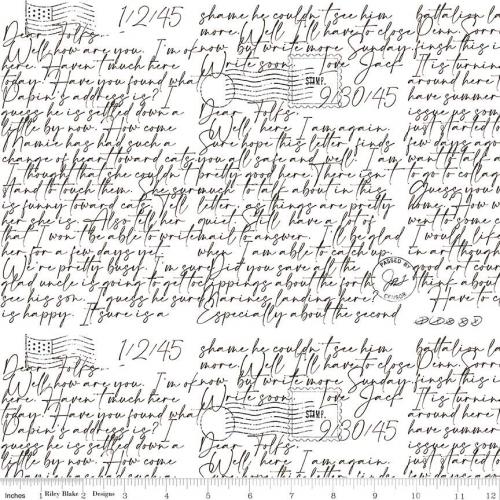 1/2/45
Dear Folks.
Well, how are you. I'm of
here. Haven't much here
today. Have you found what
Papin's address is?
guess he is settled down a
little by now. How come
Mamie has had such a
change of heart toward cats
I thought that she couldn't
stand to touch them. She sur
is funny toward cats. Tell
her she is. Also tell her
that I won't be able to write
her for a few days yet.
We're pretty busy. I'm sure
Glad uncle is going to get to
see his son. I guess he sure
is happy. It sure is a
shame he couldn't see him
more. But will have to close
now but write more Sunday.
Write soon. Love Jack
STAMP.
9/30/45
Dear Folks.
Well here I am again.
Sure hope this letter finds
you all safe and well. I am
pretty good here. There isn't
much to talk about in this
letter, as things are pretty
quiet. Still have a lot of
mail to answer. I'll be glad
when I am able to catch up.
Did you save all the
clippings about the forth
Marines landing here?
Especially about the second
PASSED BY
CENSOR
battalion la
Denn. Sorr
finish this i
It is turnin
around here.
have summer
issue us som
just started t
few days ago
want to talk
to go to colleg
Guess you'll
home. How w
went to some
I would life
in art though
good art coul
think about
Have to c
1/2/45
Dear Folks.
Well, how are you. I'm of
here. Haven't much here
today. Have you found what
Papin's address is?
guess he is settled down a
little by now. How come
shame he couldn't see him
more. But will have to close
now but write more Sunday.
Write soon. Love Jack
STAMP.
9/30/45
Dear Folks.
Well here I am again.
Sure hope this letter finds
battalion la
Denn. Sorr
finish this i
It is turnin
around here.
have summer
issue us som
just started t
few days ago
Inches 1 Riley Blake 2 Designs 3 4 5 6 7 8 9 10 11 12